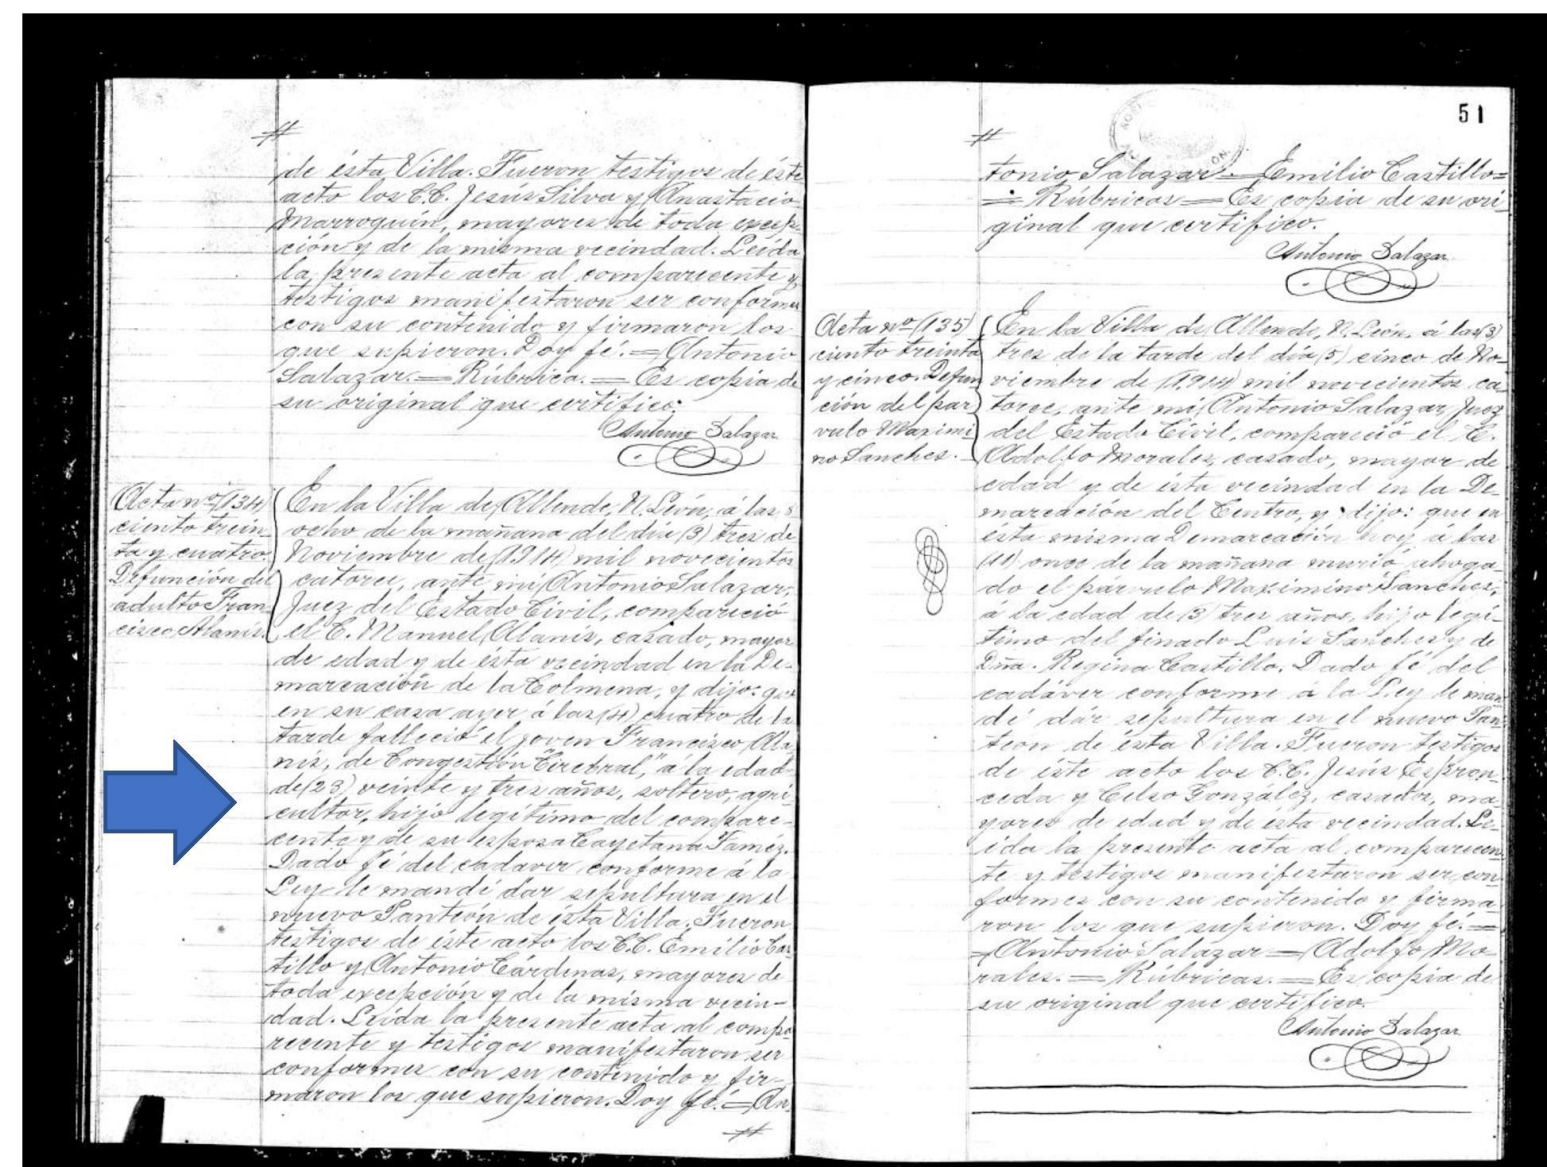 #
de ésta Villa. Fueron testigos de éste
acto los C.C. Jesús Silva y Anastacio
Marroquin, mayores de toda excep-
ción y de la misma vecindad. Leída
la presente acta al compareciente y
testigos manifestaron ser conformes
con su contenido y firmaron los
que supieron. Doy fé. = Antonio
Salazar. = Rúbrica. = Es copia de
su original que certifico.
Antonio Salazar
Acta nº (134)
ciento trein-
ta y cuatro
Defunción del
adulto Fran-
cisco Alanis.
En la Villa de Allende, N. León, á las 8
ocho de la mañana del día (3) tres de
Noviembre de (1914) mil novecientos
catorce, ante mi Antonio Salazar,
Juez del Estado Civil, compareció
el C. Manuel Alanis, casado, mayor
de edad y de ésta vecindad en la De-
marcación de la Colmena, y dijo: que
en su casa ayer á las (4) cuatro de la
tarde falleció el joven Francisco Ala-
nis, de "Congestión Cerebral," á la edad
de (23) veinte y tres años, soltero, agri-
cultor, hijo legítimo del compare-
cente y de su esposa Cayetana Taméz.
Dado fé del cadaver conforme á la
Ley le mandé dar sepultura en el
nuevo Panteón de ésta Villa. Fueron
testigos de éste acto los C.C. Emilio Cas-
tillo y Antonio Cárdenas, mayores de
toda excepción y de la misma vecin-
dad. Leída la presente acta al compa-
recente y testigos manifestaron ser
conformes con su contenido y fir-
maron los que supieron. Doy fé. = An-
#
51
#
tonio Salazar = Emilio Castillo =
= Rúbricas = Es copia de su ori-
ginal que certifico.
Antonio Salazar
Acta nº (135)
ciento treinta
y cinco. Defun-
ción del pár-
vulo Maximi-
no Sanches.
En la Villa de Allende, N. León, á las (3)
tres de la tarde del día (5) cinco de No-
viembre de (1914) mil novecientos ca-
torce, ante mi Antonio Salazar, Juez
del Estado Civil, compareció el C.
Adolfo Morales, casado, mayor de
edad y de ésta vecindad en la De-
marcación del Centro, y dijo: que en
ésta misma Demarcación hoy á las
(11) once de la mañana murió ahoga-
do el párvulo Maximino Sanches,
á la edad de (3) tres años, hijo legi-
timo del finado Luis Sanches y de
Dña. Regina Castillo. Dado fé del
cadáver conforme á la Ley le man-
dé dár sepultura en el nuevo Pan-
teon de ésta Villa. Fueron testigos
de éste acto los C.C. Jesús Espron-
ceda y Celso González, casados, ma-
yores de edad y de esta vecindad. Le-
ida la presente acta al comparecen-
te y testigos manifestaron ser con-
formes con su contenido y firma-
ron los que supieron. Doy fé. =
= Antonio Salazar = Adolfo Mo-
rales. = Rúbricas. = Es copia de
su original que certifico.
Antonio Salazar